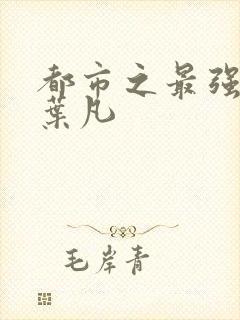 都市之最强
葉凡
毛岸青